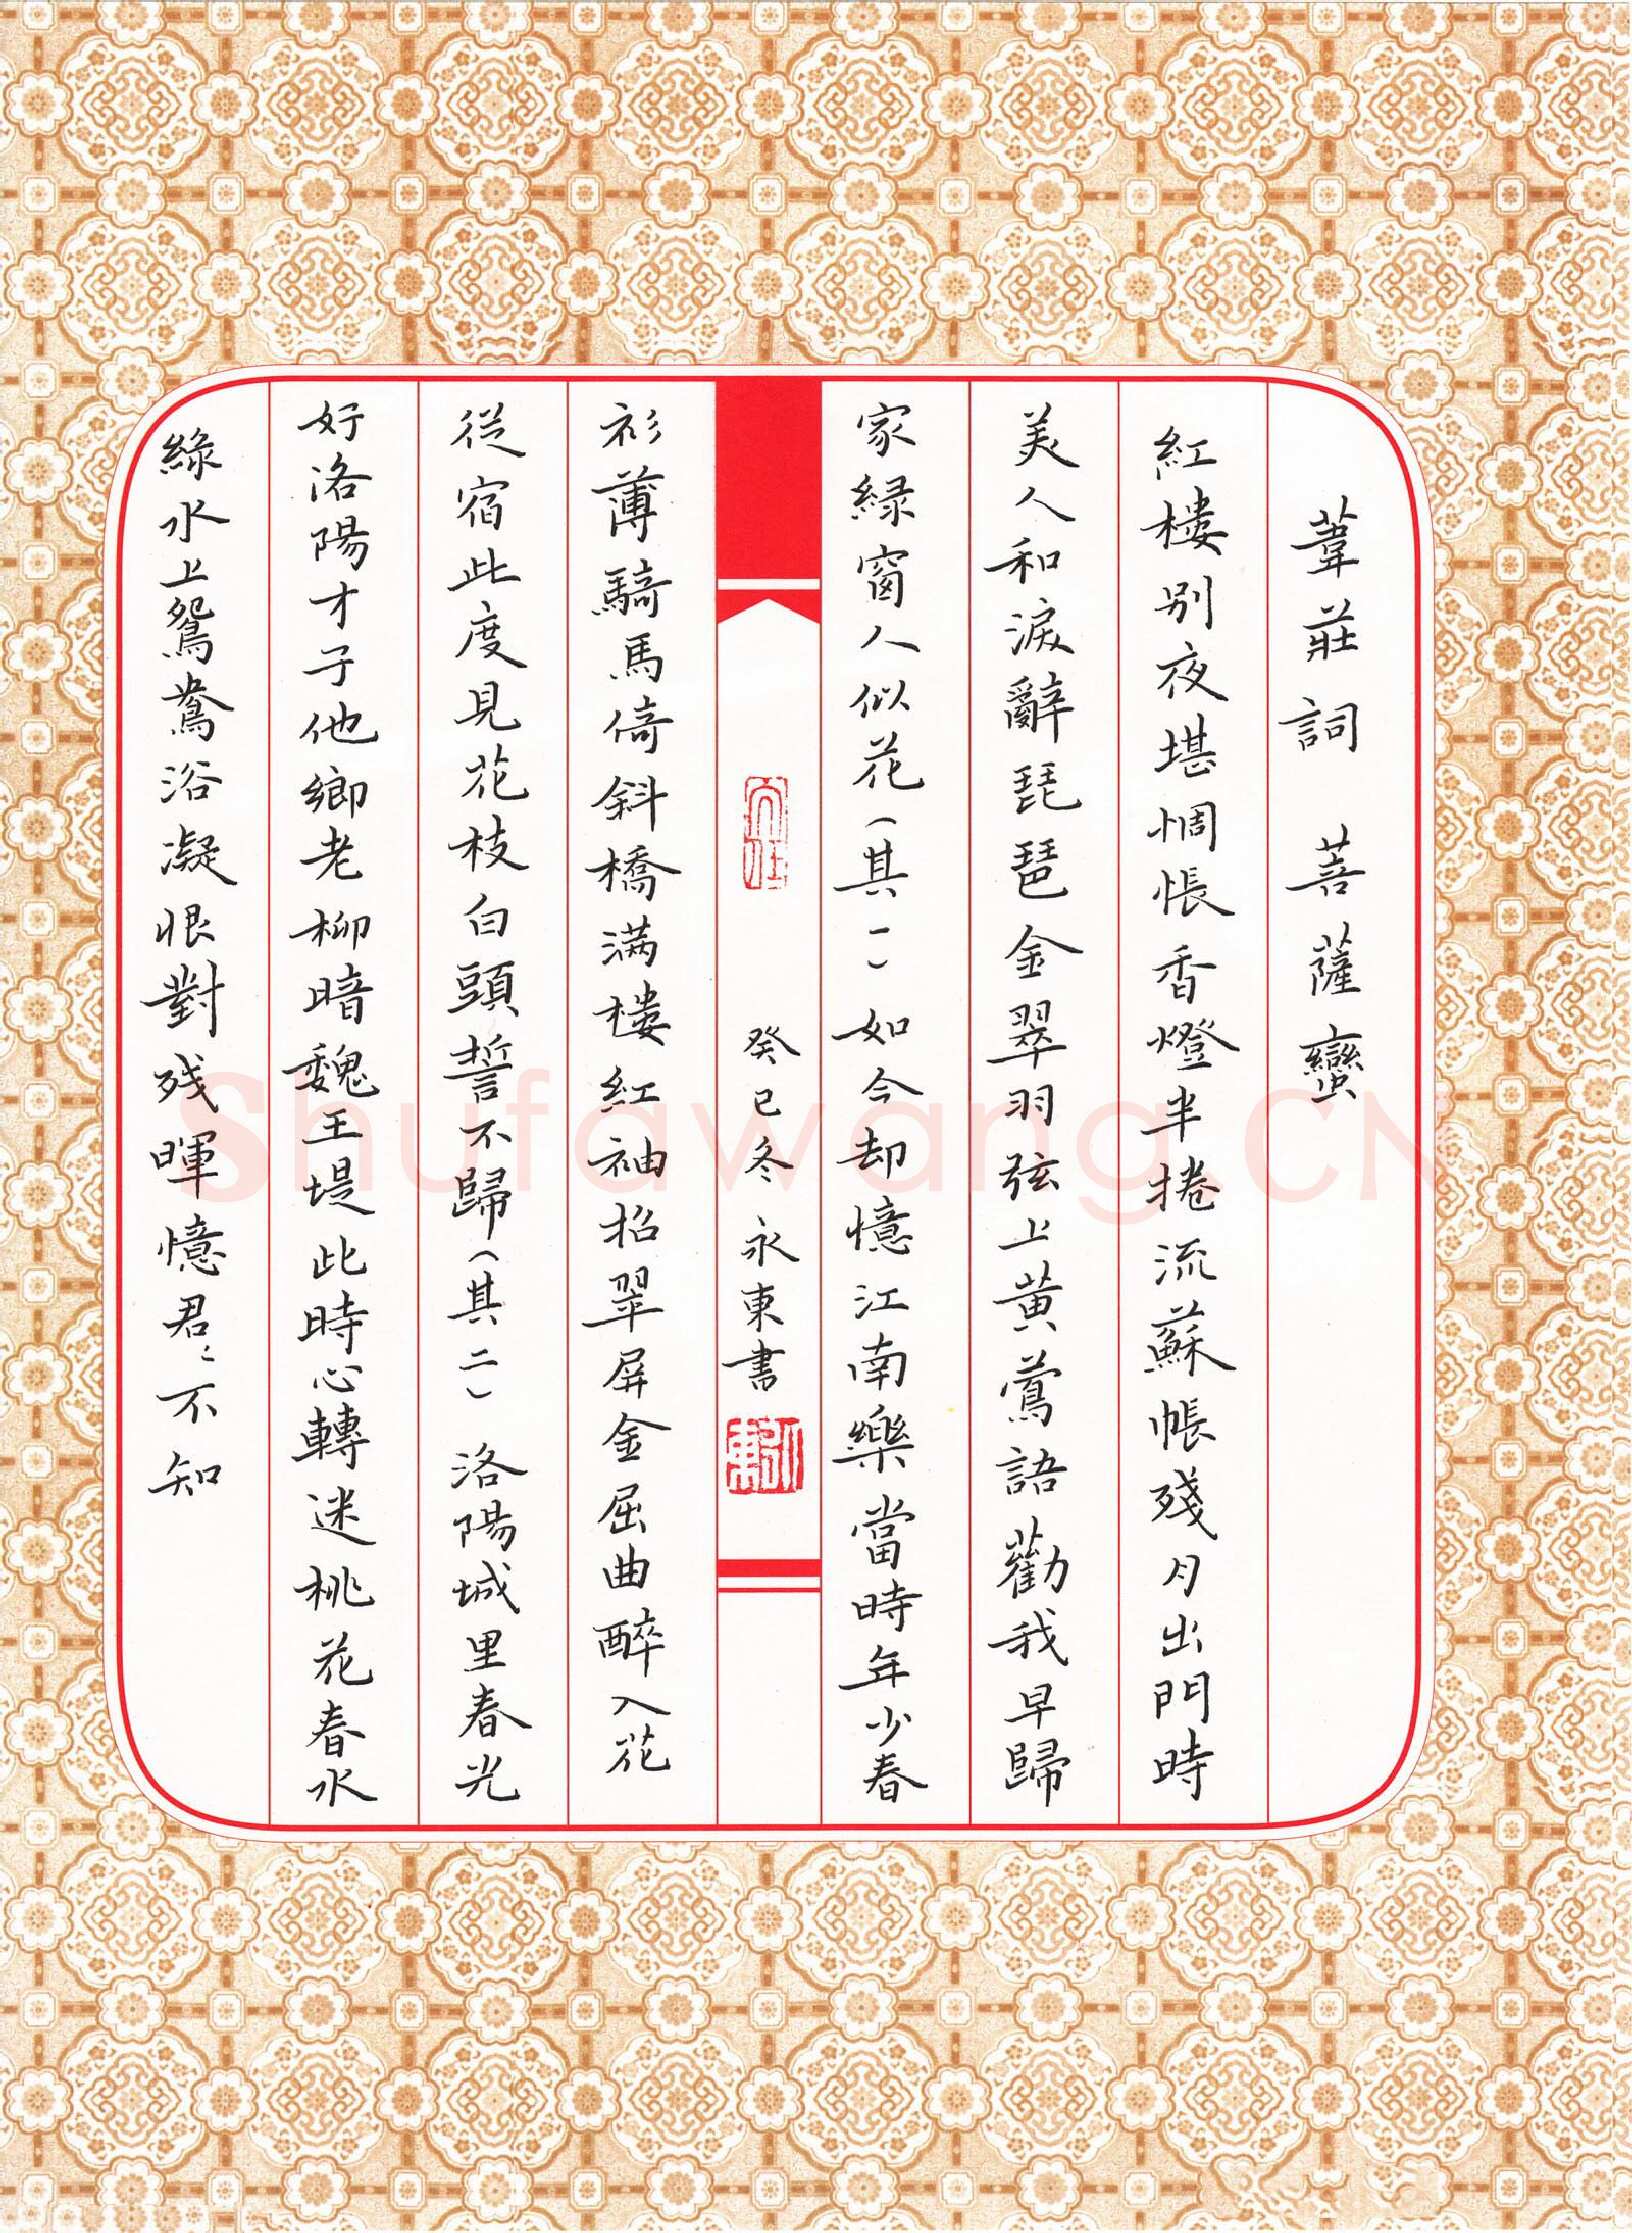 葦莊詞 菩薩蠻
紅樓别夜堪惆悵香燈半捲流蘇帳殘月出門時
美人和淚辭琵琶金翠羽弦上黄鶯語勸我早歸
家緑窗人似花(其一)如今却憶江南樂當時年少春
衫薄騎馬倚斜橋满樓紅袖招翠屏金屈曲醉入花
從宿此度見花枝白頭誓不歸(其二)洛陽城里春光
好洛陽才子他鄉老柳暗魏王堤此時心轉迷桃花春水
綠水上鴛鴦浴凝恨對残暉憶君〻不知
癸巳冬 永東書
Shufawang.CN